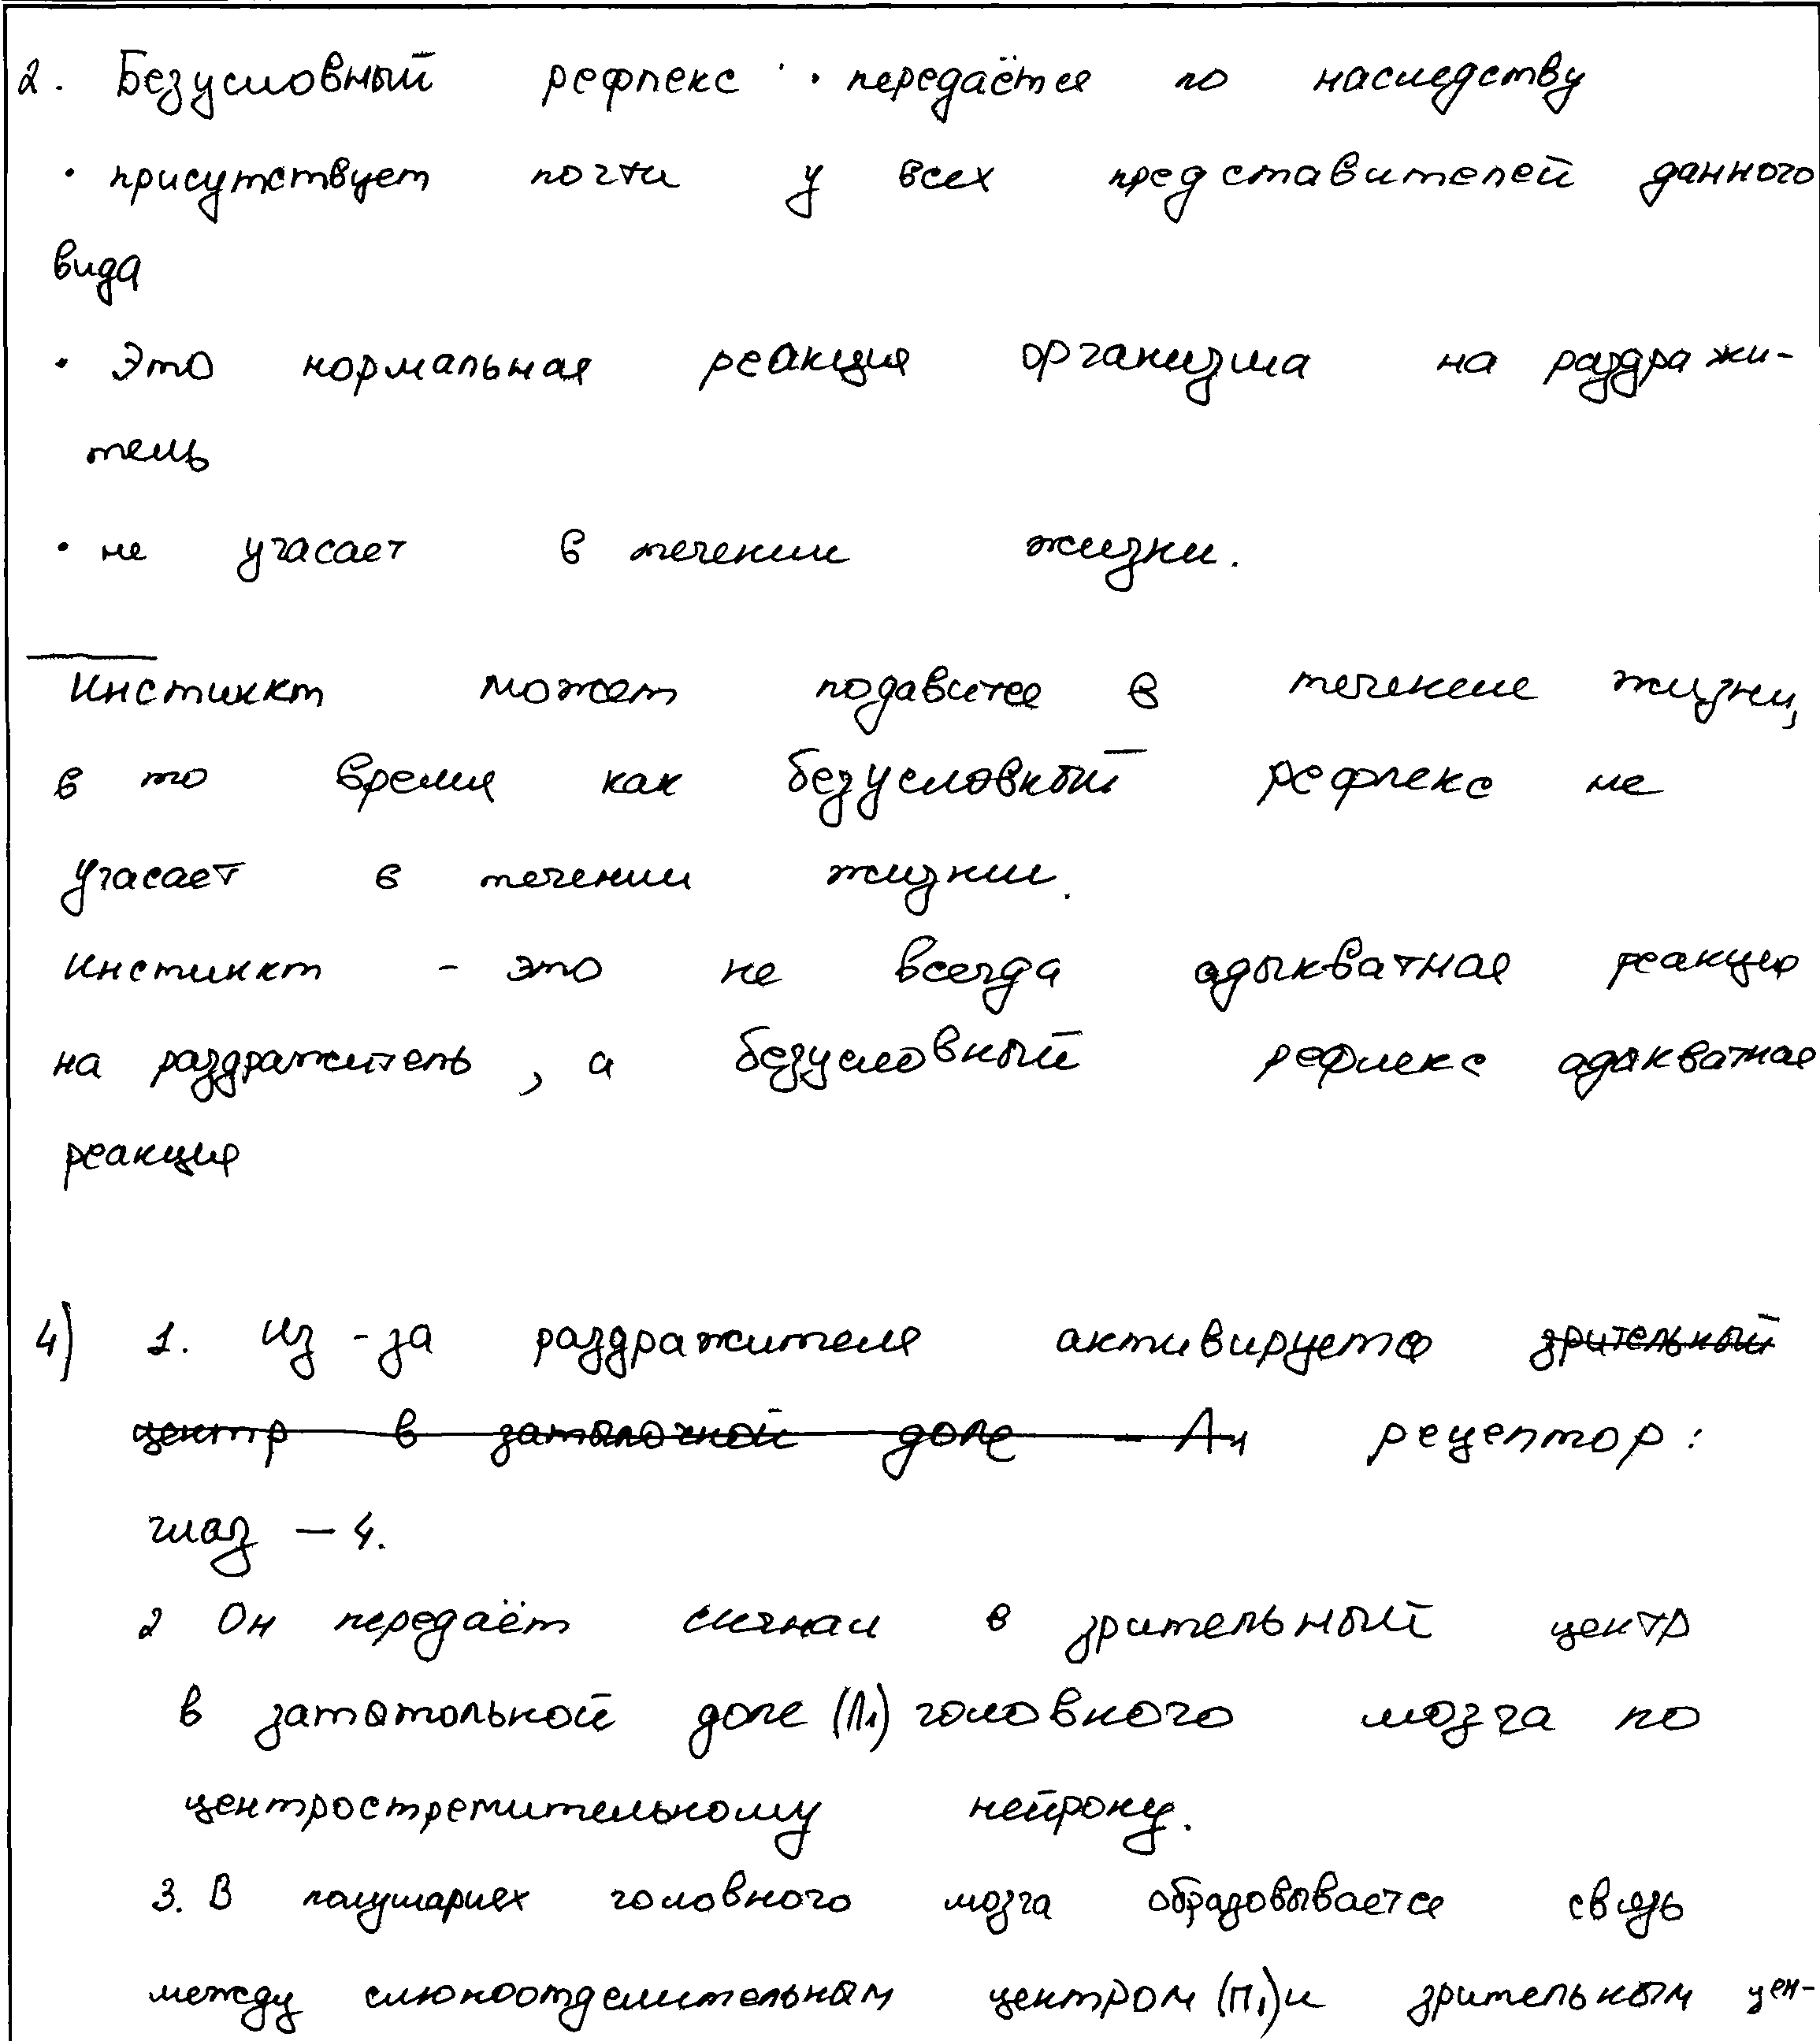 2. Безусловный рефлекс · · передаётся по наследству
· присутствует почти у всех представителей данного
вида
· Это нормальная реакция организма на раздражи-
тель
· не угасает в течении жизни.
Инстинкт может подавится в течение жизни,
в то время как безусловный рефлекс не
угасает в течении жизнии.
Инстинкт - это не всегда адыкватная реакция
на раздражитель, а безусловный рефлекс адыкватная
реакция
4) 1. Из-за раздражителя активируется зрительный
центр в затылочной доле - Л1 рецептор:
глаз - 4.
2 Он передаёт сигнал в зрительный центр
в доле (Л1) головного мозга по
центростремительному нейрону.
3. В полушариях головного мозга образовывается связь
между слюноотделительным центром (П1) и зрительным цен-